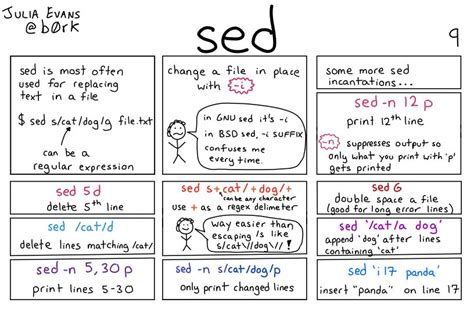 JULIA EVANS
@b0rk
sed
9
sed is most often
used for replacing
text in a file
$ sed s/cat/dog/g file.txt
can be a
regular expression
change a file in place
with -i
in GNU sed it's -i
in BSD sed, -i SUFFIX
confuses me
every time.
some more sed
incantations...
sed -n 12 p
print 12th line
-n suppresses output so
only what you print with 'p'
gets printed
sed 5 d
delete 5th line
sed s+cat/+dog/+
can be any character
use + as a regex delimeter
way easier than
escaping is like
s/cat\//dog\// !
sed G
double space a file
(good for long error lines)
sed /cat/d
delete lines matching /cat/
sed '/cat/a dog'
append 'dog' after lines
containing 'cat'
sed -n 5,30 p
print lines 5-30
sed -n s/cat/dog/p
only print changed lines
sed 'i 17 panda'
insert "panda" on line 17